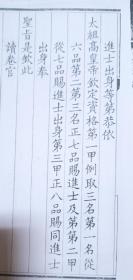 進士出身等第恭依
太祖高皇帝欽定資格第一甲例取三名第一名從
六品第二第三名正七品賜進士及第第二甲
從七品賜進士出身第三甲正八品賜同進士
出身奉
聖旨是欽此
讀卷官